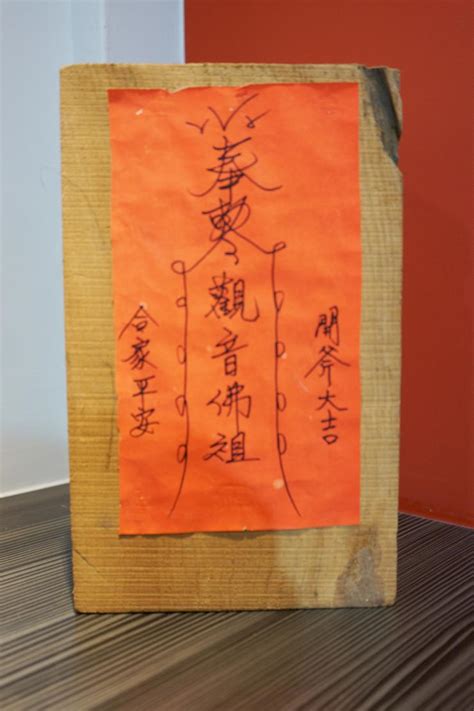 開斧大吉
奉敕觀音佛祖
合家平安